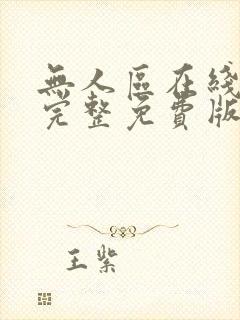 無人區在綫
完整免費版
王紫